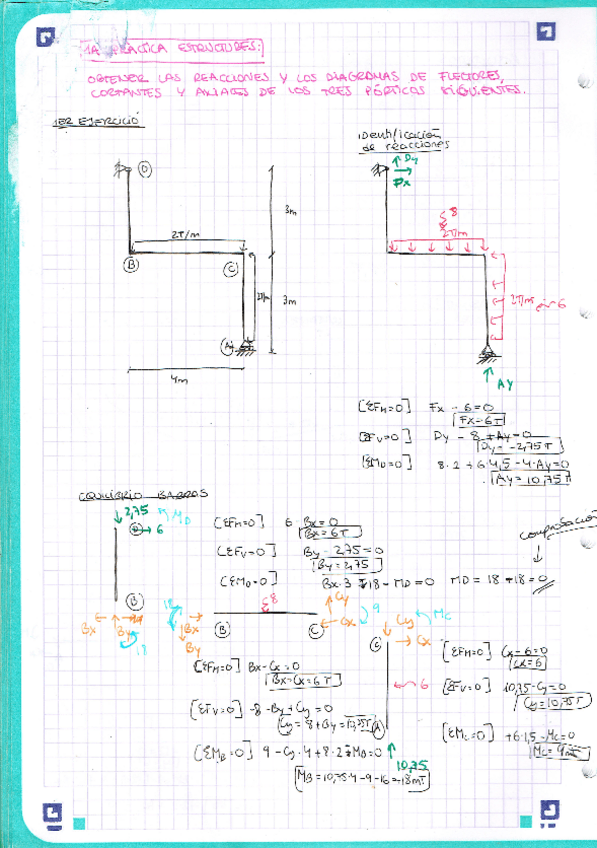 1A PRACTICA ESTRUCTURES:
OBTENER LAS REACCIONES Y LOS DIAGRAMAS DE FLECTORES,
CORTANTES Y AXIALES DE LOS TRES PÓRTICOS SIGUIENTES.
1ER EJERCICIO
Identificación
de reacciones
D
Dy
Dx
3m
8
2T/m
2T/m
B
C
3m
2T/m
6
A
4m
Ay
[ΣFH=0] Fx - 6 = 0
Fx=6T
[ΣFV=0] Dy - 8 + Ay = 0
Dy = -2,75T
[ΣMD=0] 8·2 + 6·4,5 - 4·Ay = 0
Ay = 10,75T
EQUILIBRIO BARRAS
2,75 MD
D 6
B
Bx By 18
[ΣFH=0] 6 - Bx = 0
Bx = 6T
[ΣFV=0] By - 2,75 = 0
By = 2,75
[ΣMD=0] Bx·3 - 18 - MD = 0 MD = 18 - 18 = 0
comprobación
8
18
Bx
By
B
C
Cy
Cx
9
[ΣFH=0] Bx - Cx = 0
Bx = Cx = 6T
[ΣFV=0] -8 - By + Cy = 0
Cy = 8 + By = 10,75T
[ΣMB=0] 9 - Cy·4 + 8·2 + MB = 0
MB = 10,75·4 - 9 - 16 = 18mT
Cy Mc
C Cx
6
A
10,75
[ΣFH=0] Cx - 6 = 0
Cx = 6
[ΣFV=0] 10,75 - Cy = 0
Cy = 10,75T
[ΣMc=0] +6·1,5 - Mc = 0
Mc = 9mT